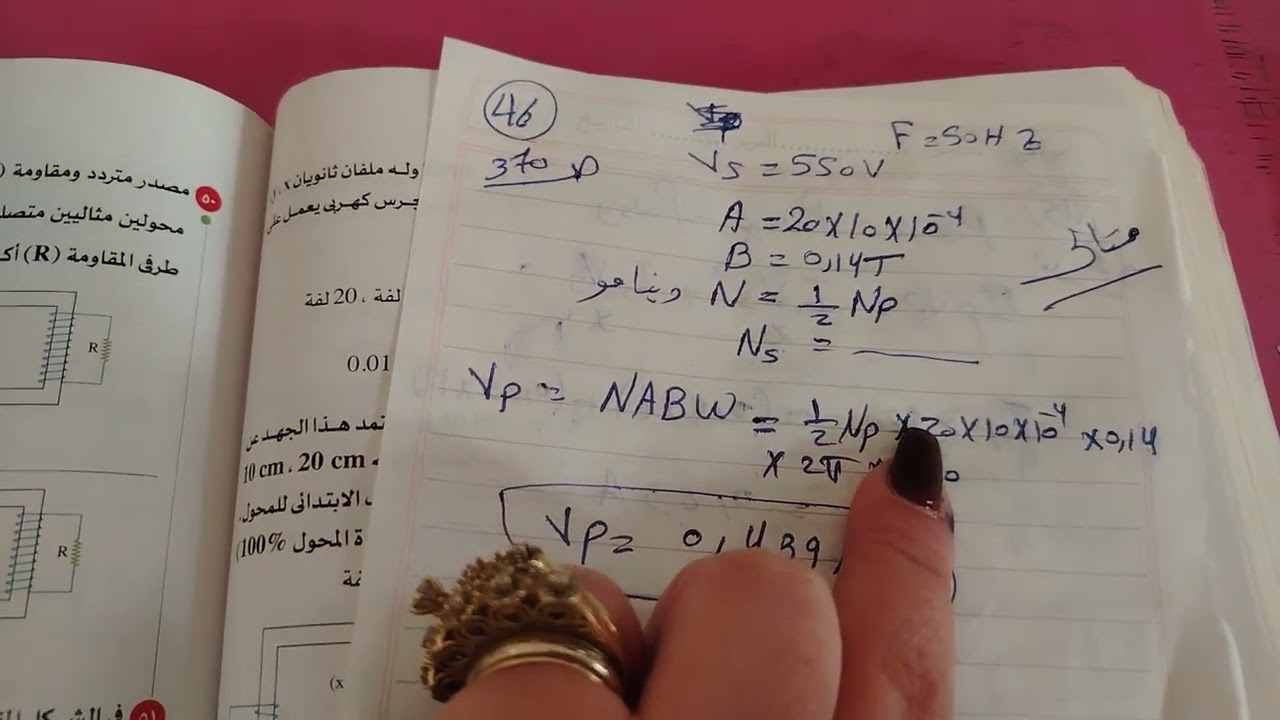 ٥٠ مصدر متردد ومقاومة (
محولين مثاليين متصلـ
طرفى المقاومة (R) أكـ
R
R
وله ملفان ثانويان
جرس كهربى يعمل على
لفة ، 20 لفة
0.01
تمد هذا الجهد عن
10 cm ، 20 cm
الابتدائى للمحول
ة المحول 100%)
فة
(x
٥١ فى الشكل
46
370 D
F = 50 H z
Vs = 550 V
A = 20 x 10 x 10⁻⁴
B = 0,14 T
دينامو N = 1/2 Np
Ns = ———
ممتاز
Vp = NABW = 1/2 Np x 20 x 10 x 10⁻⁴ x 0,14
x 2π x
Vp = 0,439